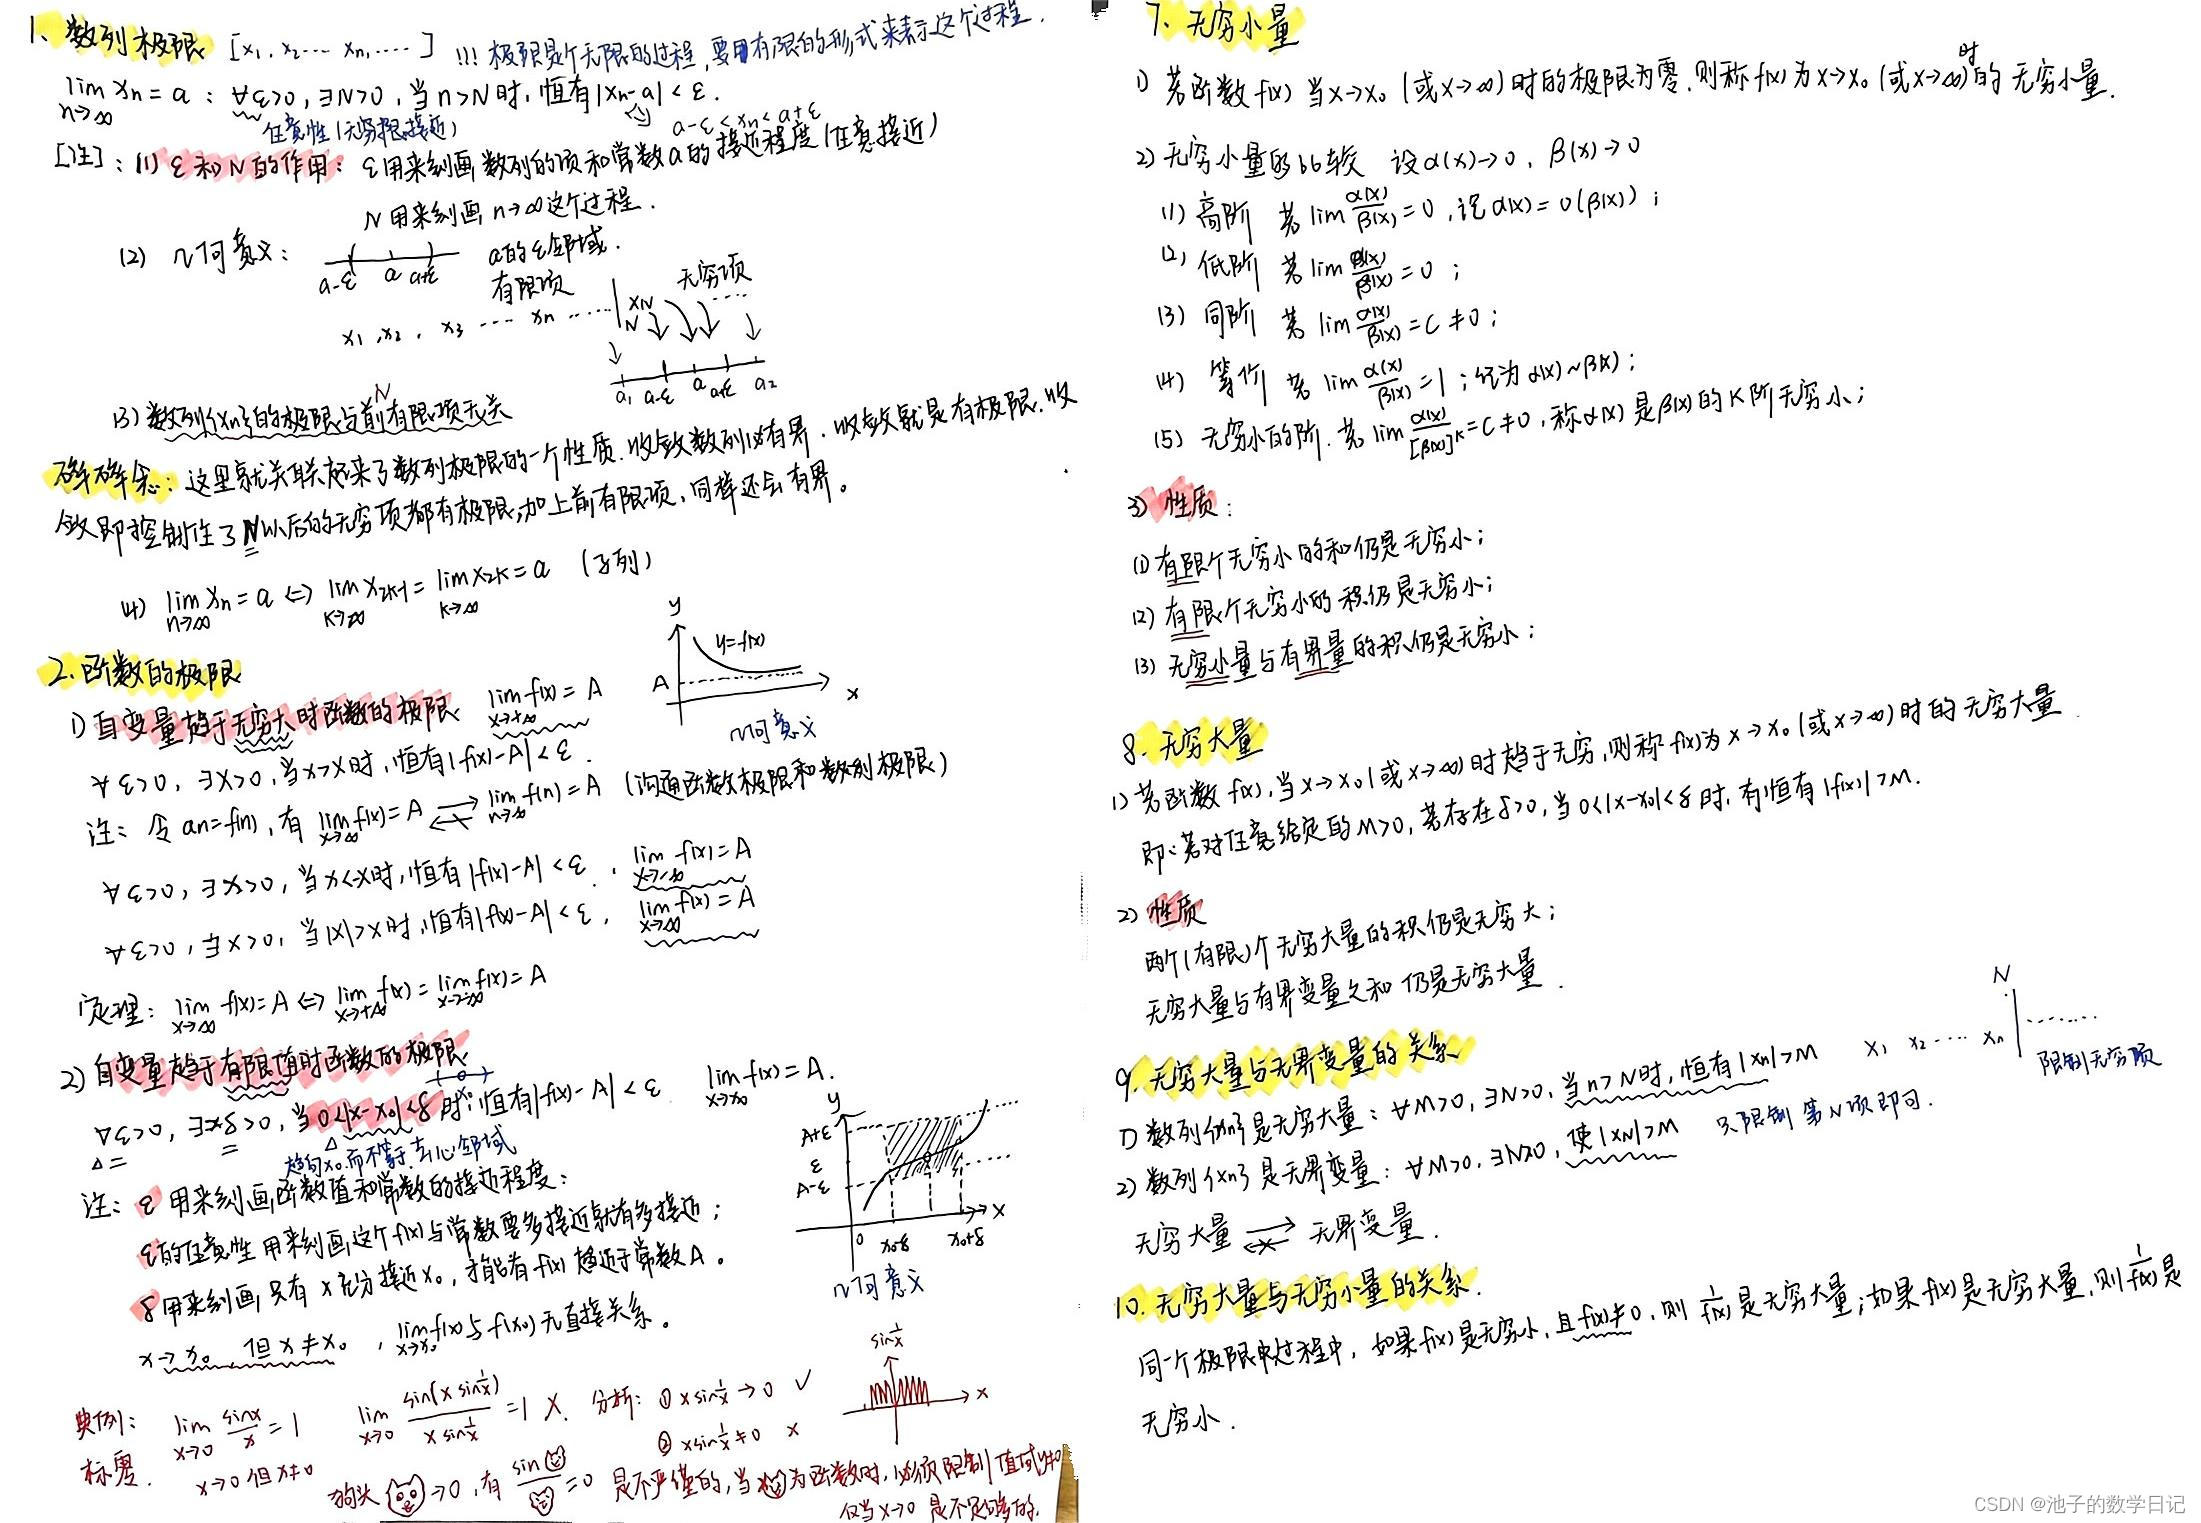 1、数列极限 [x₁, x₂ ⋯ xₙ, ⋯] !!! 极限是个无限的过程,要用有限的形式来表示这个过程.
lim xₙ = a : ∀ε>0, ∃N>0, 当 n>N 时, 恒有 |xₙ-a| < ε.
n→∞
任意性(无穷接近) a-ε < xₙ < a+ε
[注]: (1) ε和N的作用: ε用来刻画数列的项和常数a的接近程度(任意接近)
N用来刻画 n→∞ 这个过程.
(2) 几何意义: a-ε a a+ε a的ε邻域.
有限项 无穷项
x₁, x₂, x₃ ⋯ xₙ ⋯ xN
N
a₁ a-ε a a+ε a₂
N
(3) 数列{xn}的极限与前有限项无关
碎碎念: 这里就关联起来了数列极限的一个性质.收敛数列必有界.收敛就是有极限.收
敛即控制住了N以后的无穷项都有极限,加上前有限项,同样还会有界。
(4) lim xₙ = a ⇔ lim x₂ₖ₋₁ = lim x₂ₖ = a (子列)
n→∞ k→∞ k→∞
2.函数的极限
1) 自变量趋于无穷大时函数的极限 lim f(x) = A
x→+∞
y y=f(x) A x
几何意义
∀ε>0, ∃X>0, 当x>X时, 恒有|f(x)-A|<ε.
注: 令 an=f(n), 有 lim f(x)=A ⇄ lim f(n)=A (沟通函数极限和数列极限)
x→∞ n→∞
∀ε>0, ∃X>0, 当x<-X时, 恒有|f(x)-A|<ε. , lim f(x)=A
x→-∞
∀ε>0, ∃X>0, 当|x|>X时, 恒有|f(x)-A|<ε, lim f(x)=A
x→∞
定理: lim f(x)=A ⇔ lim f(x)= lim f(x)=A
x→∞ x→+∞ x→-∞
2) 自变量趋于有限值时函数的极限
∀ε>0, ∃δ>0, 当0<|x-x₀|<δ时, 恒有|f(x)-A|<ε lim f(x)=A.
x→x₀
趋向x₀而不等于,去心邻域
y A+ε ε A-ε 0 x₀-δ x₀+δ x
几何意义
注: ε 用来刻画函数值和常数的接近程度;
ε的任意性用来刻画这个f(x)与常数要多接近就有多接近;
δ用来刻画只有x充分接近x₀, 才能有f(x)趋近于常数A。
x→x₀ 但x≠x₀ , lim f(x)与f(x₀)无直接关系。
x→x₀
典例: lim sinx/x = 1 lim sin(x sin1/x)/(x sin1/x) = 1 × 分析: ① x sin1/x →0 ✓
x→0 x→0
标零. x→0但x≠0 ② x sin1/x ≠0 ×
sin1/x x
狗头 →0, 有 sin =0 是不严谨的,当 为函数时,必须限制值域≠0
仅当x→0 是不足够的.
7、无穷小量
1) 若函数f(x) 当x→x₀ (或x→∞)时的极限为零,则称f(x)为x→x₀ (或x→∞)时的无穷小量.
2) 无穷小量的比较 设α(x)→0, β(x)→0
(1) 高阶 若 lim α(x)/β(x) = 0, 记α(x)=o(β(x));
(2) 低阶 若 lim α(x)/β(x) = 0 ;
(3) 同阶 若 lim α(x)/β(x) = C ≠ 0;
(4) 等价 若 lim α(x)/β(x) = 1 ; 记为 α(x)~β(x);
(5) 无穷小的阶. 若 lim α(x)/[β(x)]^K = C ≠ 0, 称α(x) 是β(x)的K阶无穷小;
3) 性质:
(1) 有限个无穷小的和仍是无穷小;
(2) 有限个无穷小的积仍是无穷小;
(3) 无穷小量与有界量的积仍是无穷小;
8、无穷大量
1) 若函数f(x),当x→x₀(或x→∞)时趋于无穷,则称f(x)为x→x₀(或x→∞)时的无穷大量.
即:若对任意给定的M>0, 若存在δ>0, 当0<|x-x₀|<δ时, 有恒有|f(x)|>M.
2) 性质
两个(有限)个无穷大量的积仍是无穷大;
无穷大量与有界变量之和仍是无穷大量.
9.无穷大量与无界变量的关系
1) 数列{xn}是无穷大量: ∀M>0, ∃N>0, 当n>N时, 恒有|xₙ|>M x₁ x₂ ⋯ xₙ N 限制无穷项
2) 数列{xn}是无界变量: ∀M>0, ∃N>0, 使|xN|>M 只限制第N项即可.
无穷大量 ⇄ 无界变量.
10.无穷大量与无穷小量的关系.
同一个极限中过程中, 如果f(x)是无穷小,且f(x)≠0, 则 1/f(x) 是无穷大量;如果f(x)是无穷大量,则1/f(x)是
无穷小.
CSDN @池子的数学日记